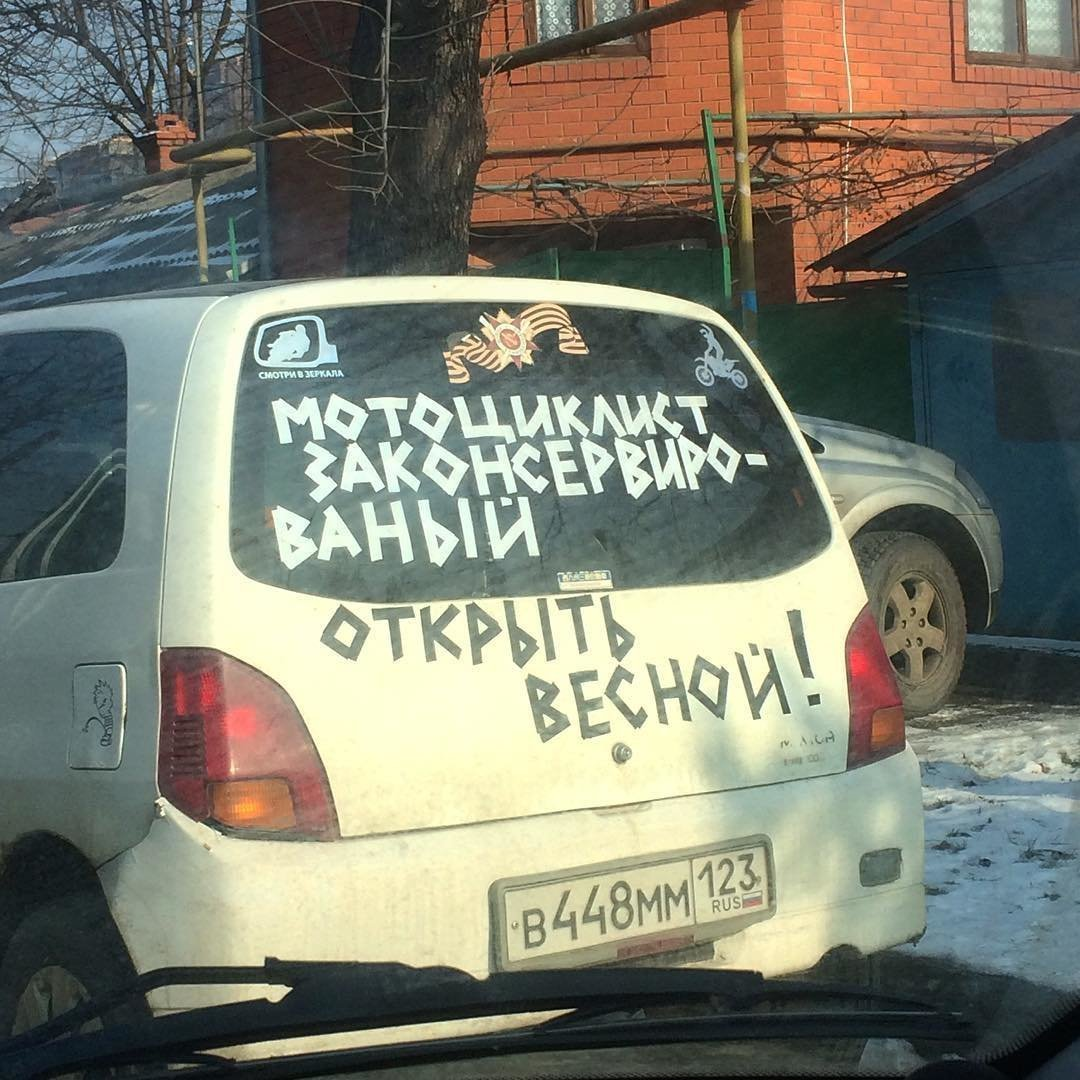 СМОТРИ В ЗЕРКАЛА
МОТОЦИКЛИСТ
ЗАКОНСЕРВИРО-
ВАНЫЙ
ОТКРЫТЬ
ВЕСНОЙ!
В448ММ 123
RUS